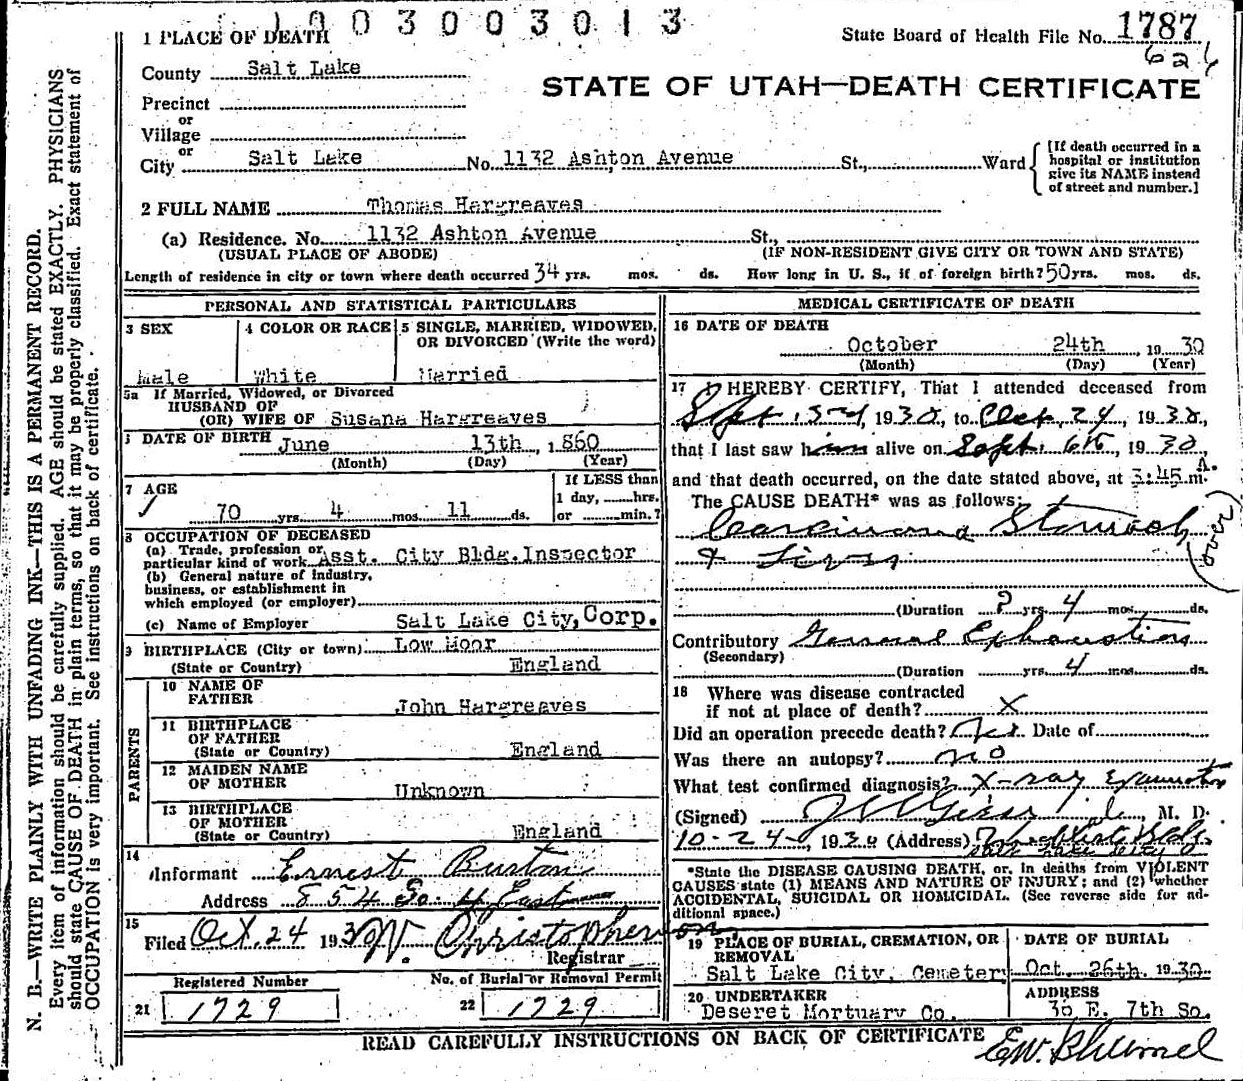 1003003013
State Board of Health File No. 1787
626
STATE OF UTAH—DEATH CERTIFICATE
1 PLACE OF DEATH
County Salt Lake
Precinct
or
Village
or
City Salt Lake No. 1132 Ashton Avenue St., Ward
[If death occurred in a hospital or institution give its NAME instead of street and number.]
2 FULL NAME Thomas Hargreaves
(a) Residence. No. 1132 Ashton Avenue St.,
(USUAL PLACE OF ABODE) (IF NON-RESIDENT GIVE CITY OR TOWN AND STATE)
Length of residence in city or town where death occurred 34 yrs. mos. ds. How long in U. S., if of foreign birth? 50 yrs. mos. ds.
PERSONAL AND STATISTICAL PARTICULARS
3 SEX
Male
4 COLOR OR RACE
White
5 SINGLE, MARRIED, WIDOWED, OR DIVORCED (Write the word)
Married
5a If Married, Widowed, or Divorced
HUSBAND OF
(OR) WIFE OF Susana Hargreaves
DATE OF BIRTH June 13th, 1860
(Month) (Day) (Year)
7 AGE
70 yrs. 4 mos. 11 ds.
If LESS than
1 day, hrs.
or min.?
8 OCCUPATION OF DECEASED
(a) Trade, profession or
particular kind of work Asst. City Bldg. Inspector
(b) General nature of industry,
business, or establishment in
which employed (or employer)
(c) Name of Employer Salt Lake City, Corp.
9 BIRTHPLACE (City or town) Low Moor
(State or Country) England
PARENTS
10 NAME OF
FATHER John Hargreaves
11 BIRTHPLACE
OF FATHER
(State or Country) England
12 MAIDEN NAME
OF MOTHER Unknown
13 BIRTHPLACE
OF MOTHER
(State or Country) England
14
Informant Ernest Burton
Address 854 So. 4 East
15
Filed Oct. 24 1930 W. Christopherson
Registrar
Registered Number
21 1729
No. of Burial or Removal Permit
22 1729
MEDICAL CERTIFICATE OF DEATH
16 DATE OF DEATH
October 24th, 1930
(Month) (Day) (Year)
17 I HEREBY CERTIFY, That I attended deceased from
Sept. 3rd, 1930, to Oct. 24, 1930,
that I last saw him alive on Sept. 6th, 1930,
and that death occurred, on the date stated above, at 3:45 A.m.
The CAUSE DEATH* was as follows:
Carcinoma Stomach
& Liver
(over)
(Duration ? yrs. 4 mos. ds.
Contributory General Exhaustion
(Secondary)
(Duration yrs. 4 mos. ds.
18 Where was disease contracted
if not at place of death? X
Did an operation precede death? Date of
Was there an autopsy? no
What test confirmed diagnosis? X-ray
(Signed) M. D.
10-24-, 1930 (Address)
Salt Lake City
*State the DISEASE CAUSING DEATH, or, in deaths from VIOLENT
CAUSES state (1) MEANS AND NATURE OF INJURY; and (2) whether
ACCIDENTAL, SUICIDAL OR HOMICIDAL. (See reverse side for ad-
ditional space.)
19 PLACE OF BURIAL, CREMATION, OR
REMOVAL
Salt Lake City, Cemetery
DATE OF BURIAL
Oct. 26th. 1930
20 UNDERTAKER
Deseret Mortuary Co.
ADDRESS
36 E. 7th So.
READ CAREFULLY INSTRUCTIONS ON BACK OF CERTIFICATE
N. B.—WRITE PLAINLY WITH UNFADING INK—THIS IS A PERMANENT RECORD.
Every item of information should be carefully supplied. AGE should be stated EXACTLY. PHYSICIANS
should state CAUSE OF DEATH in plain terms, so that it may be properly classified. Exact statement of
OCCUPATION is very important. See instructions on back of certificate.